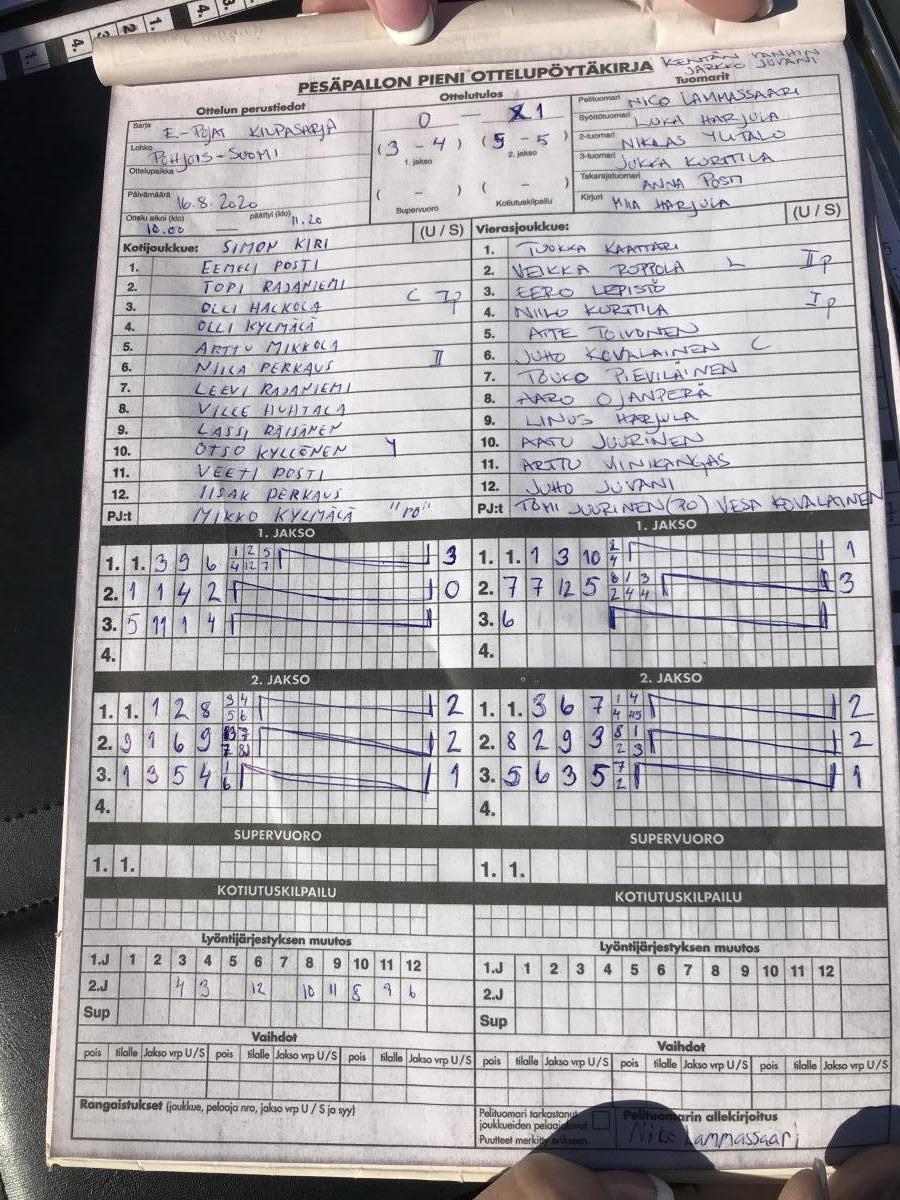 PESÄPALLON PIENI OTTELUPÖYTÄKIRJA
KENTÄN VANHIN
JARKKO JUVANI
Ottelun perustiedot
Sarja E-POJAT KILPASARJA
Lohko POHJOIS-SUOMI
Ottelupaikka
Päivämäärä 16.8.2020
Ottelu alkoi (klo) 10.00 — päättyi (klo) 11.20
Ottelutulos
0 — 1
(3 - 4) (5 - 5)
1. jakso 2. jakso
( - ) ( - )
Supervuoro Kotiutuskilpailu
Tuomarit
Pelituomari NICO LAMMASSAARI
Syöttötuomari LUKA HARJULA
2-tuomari NIKLAS YLITALO
3-tuomari JUKKA KURTTILA
Takarajatuomari ANNA POSTI
Kirjuri MIIA HARJULA
Kotijoukkue: SIMON KIRI (U / S)
1. EEMELI POSTI
2. TOPI RAJANIEMI
3. OLLI HALKOLA C Ip
4. OLLI KYLMÄLÄ
5. ARTTU MIKKOLA
6. NIILA PERKAUS II
7. LEEVI RAJANIEMI
8. VILLE HUHTALA
9. LASSI RÄISÄNEN
10. OTSO KYLLÖNEN Y
11. VEETI POSTI
12. IISAK PERKAUS
PJ:t MIKKO KYLMÄLÄ "ro"
Vierasjoukkue: (U / S)
1. TUUKKA KAATTARI
2. VEIKKA ROPPOLA L II p
3. EERO LEPISTÖ
4. NIILO KURTTILA I p
5. ATTE TOIVONEN
6. JUHO KOVALAINEN C
7. TOUKO PIEVILÄINEN
8. AARO OJANPERÄ
9. LINUS HARJULA
10. AATU JUURINEN
11. ARTTU VINIKANGAS
12. JUHO JUVANI
PJ:t TOMI JUURINEN (RO) VESA KOVALAINEN
1. JAKSO
1. 1. 3 9 6 1 2 5 3
4 12 7
2. 1 1 4 2 0
3. 5 11 1 4
4.
1. JAKSO
1. 1. 1 3 10 2 1
4
2. 7 7 12 5 6 1 3 3
2 4 4
3. 6
4.
2. JAKSO
1. 1. 1 2 8 3 4 2
5 6
2. 9 1 6 9 7 2
7 8
3. 1 3 5 4 1 1
6
4.
2. JAKSO
1. 1. 3 6 7 1 4 2
4
2. 8 2 9 3 8 1 2
2 3
3. 5 6 3 5 7 1
2
4.
SUPERVUORO
1. 1.
SUPERVUORO
1. 1.
KOTIUTUSKILPAILU
KOTIUTUSKILPAILU
Lyöntijärjestyksen muutos
1.J 1 2 3 4 5 6 7 8 9 10 11 12
2.J 4 3 12 10 11 8 9 6
Sup
Lyöntijärjestyksen muutos
1.J 1 2 3 4 5 6 7 8 9 10 11 12
2.J
Sup
Vaihdot
pois tilalle Jakso vrp U/S pois tilalle Jakso vrp U/S pois tilalle Jakso vrp U/S
Vaihdot
pois tilalle Jakso vrp U/S pois tilalle Jakso vrp U/S pois tilalle Jakso vrp U/S
Rangaistukset (joukkue, pelaaja nro, jakso vrp U / S ja syy)
Pelituomari tarkastanut
joukkueiden peluajaluvat
Puutteet merkitty erikseen
Pelituomarin allekirjoitus
Nico Lammassaari